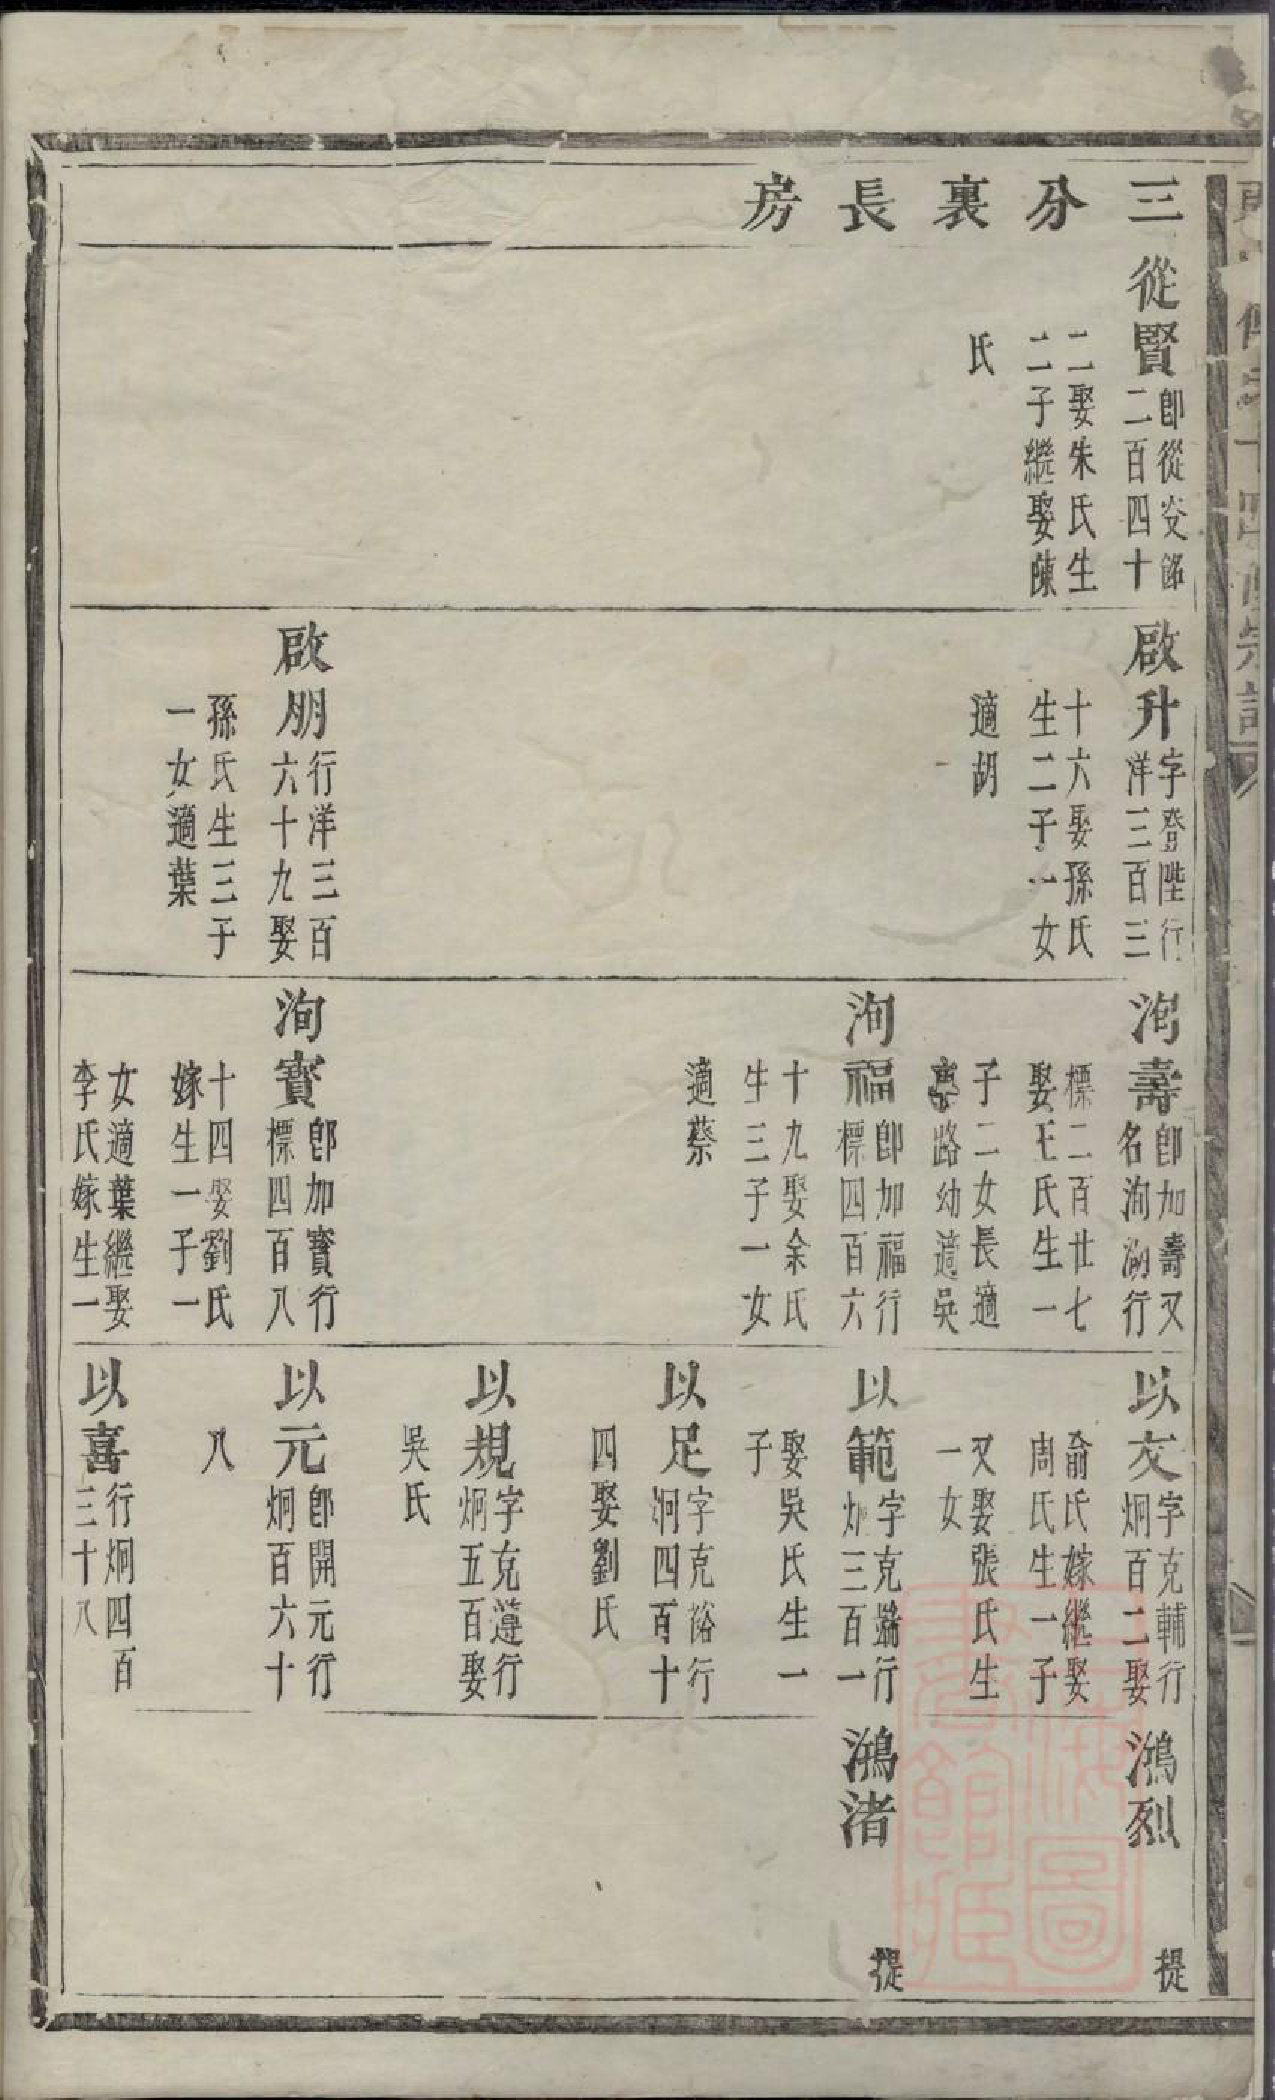 三分裏長房
從賢
即從交餡
二百四十
二娶朱氏生
二子繼娶陳
氏
啟升
字登陛行
洋三百三
十六娶孫氏
生二子一女
適胡
啟朋
行洋三百
六十九娶
孫氏生三子
一女適葉
洵壽
即加壽又
名洵湖行
標二百廿七
娶王氏生一
子二女長適
路幼適吳
洵福
即加福行
標四百六
十九娶余氏
生三子一女
適蔡
洵寳
即加寳行
標四百八
十四娶劉氏
嫁生一子一
女適葉繼娶
李氏嫁生一
以文
字克輔行
炯百二娶
俞氏嫁繼娶
周氏生一子
又娶張氏生
一女
以範
字克端行
炯三百一
娶吳氏生一
子
以足
字克裕行
炯四百十
四娶劉氏
以規
字克遵行
炯五百娶
吳氏
以元
即開元行
炯百六十
八
以喜
行炯四百
三十八
鴻烈
提
鴻渚
提